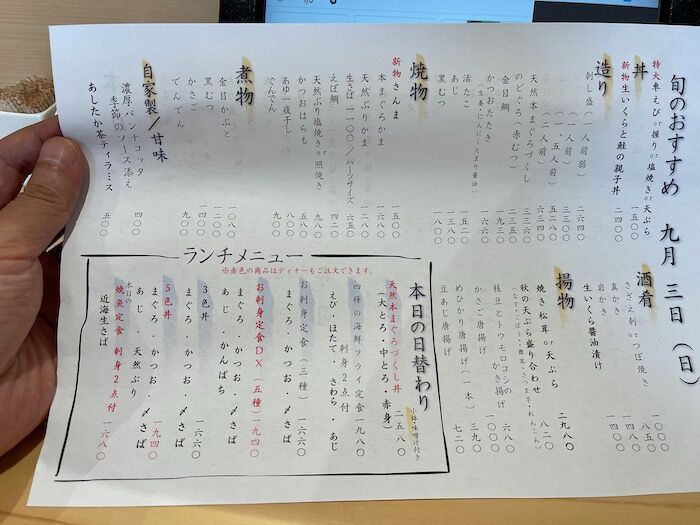 旬のおすすめ 九月 三日 (日)
丼
特大車えびor握りor塩焼きor天ぷら 一五〇〇
新物生いくらと鮭の親子丼 四二〇〇
造り
刺し盛(一人前弱) 二一〇〇
(一人前) 三三〇〇
(一、五人前) 四二〇〇
(二人前) 六三〇〇
天然本まぐろづくし
のどぐろ(赤むつ)
金目鯛
かつおたたき
(生姜・にんにくたまり醤油)
活たこ
あじ
焼物
新物さんま 一五〇〇
本まぐろかま 一六八〇
天然ぶりかま 一二八〇
生さば 一一〇〇/ハーフサイズ 六五〇
えぼ鯛
天然ぶり塩焼きor照焼き 九八〇
かつおはらも
あゆ一夜干し
でんでん
煮物
金目かぶと 一〇八〇
黒むつ
かさご 一四〇〇
でんでん 九〇〇
自家製/甘味
濃厚パンナコッタ
季節のソース添え 四〇〇
あしたか茶ティラミス 五〇〇
酒肴
さざえ刺orつぼ焼き 一〇〇〇
真かき 八五〇
岩かき
生いくら醤油漬け
揚物
焼き松茸or天ぷら 二九八〇
秋の天ぷら盛り合わせ
枝豆とトウモロコシの
かき揚げ 六八〇
かさご唐揚げ
めひかり唐揚げ(一本)
豆あじ唐揚げ 七二〇
ランチメニュー
※赤色の商品はディナーもご注文できます。
本日の日替わり
小鉢・味噌汁付き
天然本まぐろづくし丼 二五八〇
(大とろ・中とろ・赤身)
四種の海鮮フライ定食 一六八〇
刺身2点付
えび・ほたて・さわら・あじ
お刺身定食(三種) 一六三〇
まぐろ・かつお・〆さば
お刺身定食DX(五種) 一九四〇
まぐろ・かつお・〆さば
あじ・かんぱち
3色丼 一六六〇
まぐろ・かつお・〆さば
5色丼 一九四〇
まぐろ・かつお・〆さば
あじ・天然ぶり
本日の
焼魚定食 刺身2点付 一六八〇
近海生さば